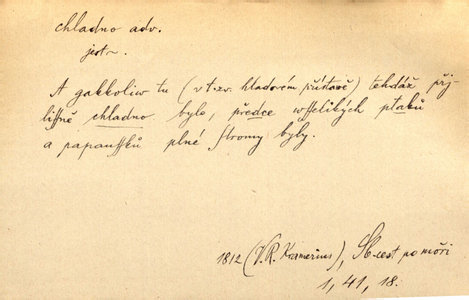 chladno adv.
jest~.
A gakkoliw tu (v t. zv. hladovém přístavě) tehdáž přj-
lissně chladno bylo, předce wsselikých ptáků
a papaussků plné stromy byly.
1812 (V. R. Kramerius), Sb. cest po moři
1, 41, 18.